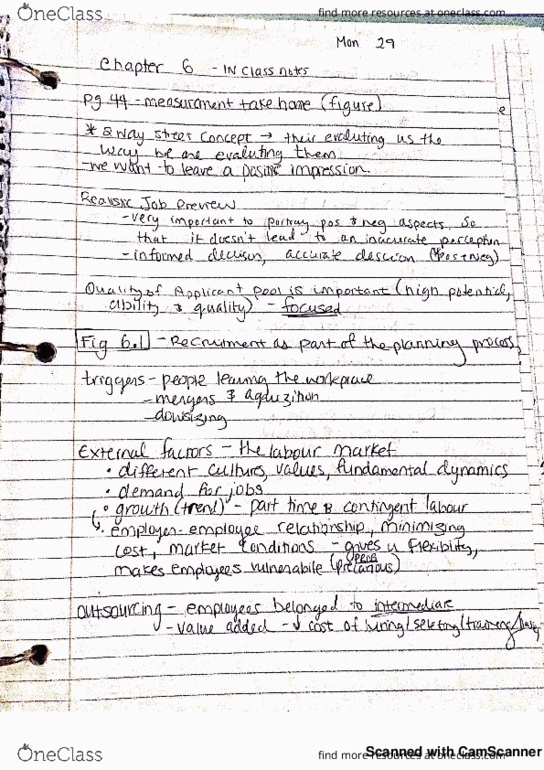 OneClass
find more resources at oneclass.com
Mon 29
Chapter 6 - IN Class notes
Pg 44 - measurement take home (figure)
* 2 way street concept → their evaluting us the
way we are evaluting them.
- we want to leave a positive impression.
Realistic Job Preview
- very important to portray pos & neg aspects. So
that it doesn't lead to an inaccurate perception
- informed decision, accurate (pos & neg)
Quality of Applicant Pool is important (high potential,
ability & quality) - focused
Fig 6.1 - Recruitment as part of the planning process
triggers - people leaving the workplace
- mergers &
- dowsizing
External factors - the labour market
• different culture, values, fundamental dynamics
• demand for jobs
• growth (trend) - part time & contingent labour
• employer-employee relationship, minimizing
cost, market conditions - gives u flexibility,
makes employees (precarious)
outsourcing - employees belonged to
- value added - ↓ cost of hiring/ /training/
OneClass
find more resources at oneclass.com
Scanned with CamScanner